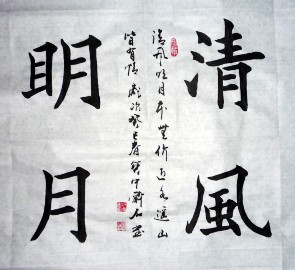 清風
清風明月本無價近水遙山
皆有情 歲次癸巳春
明月